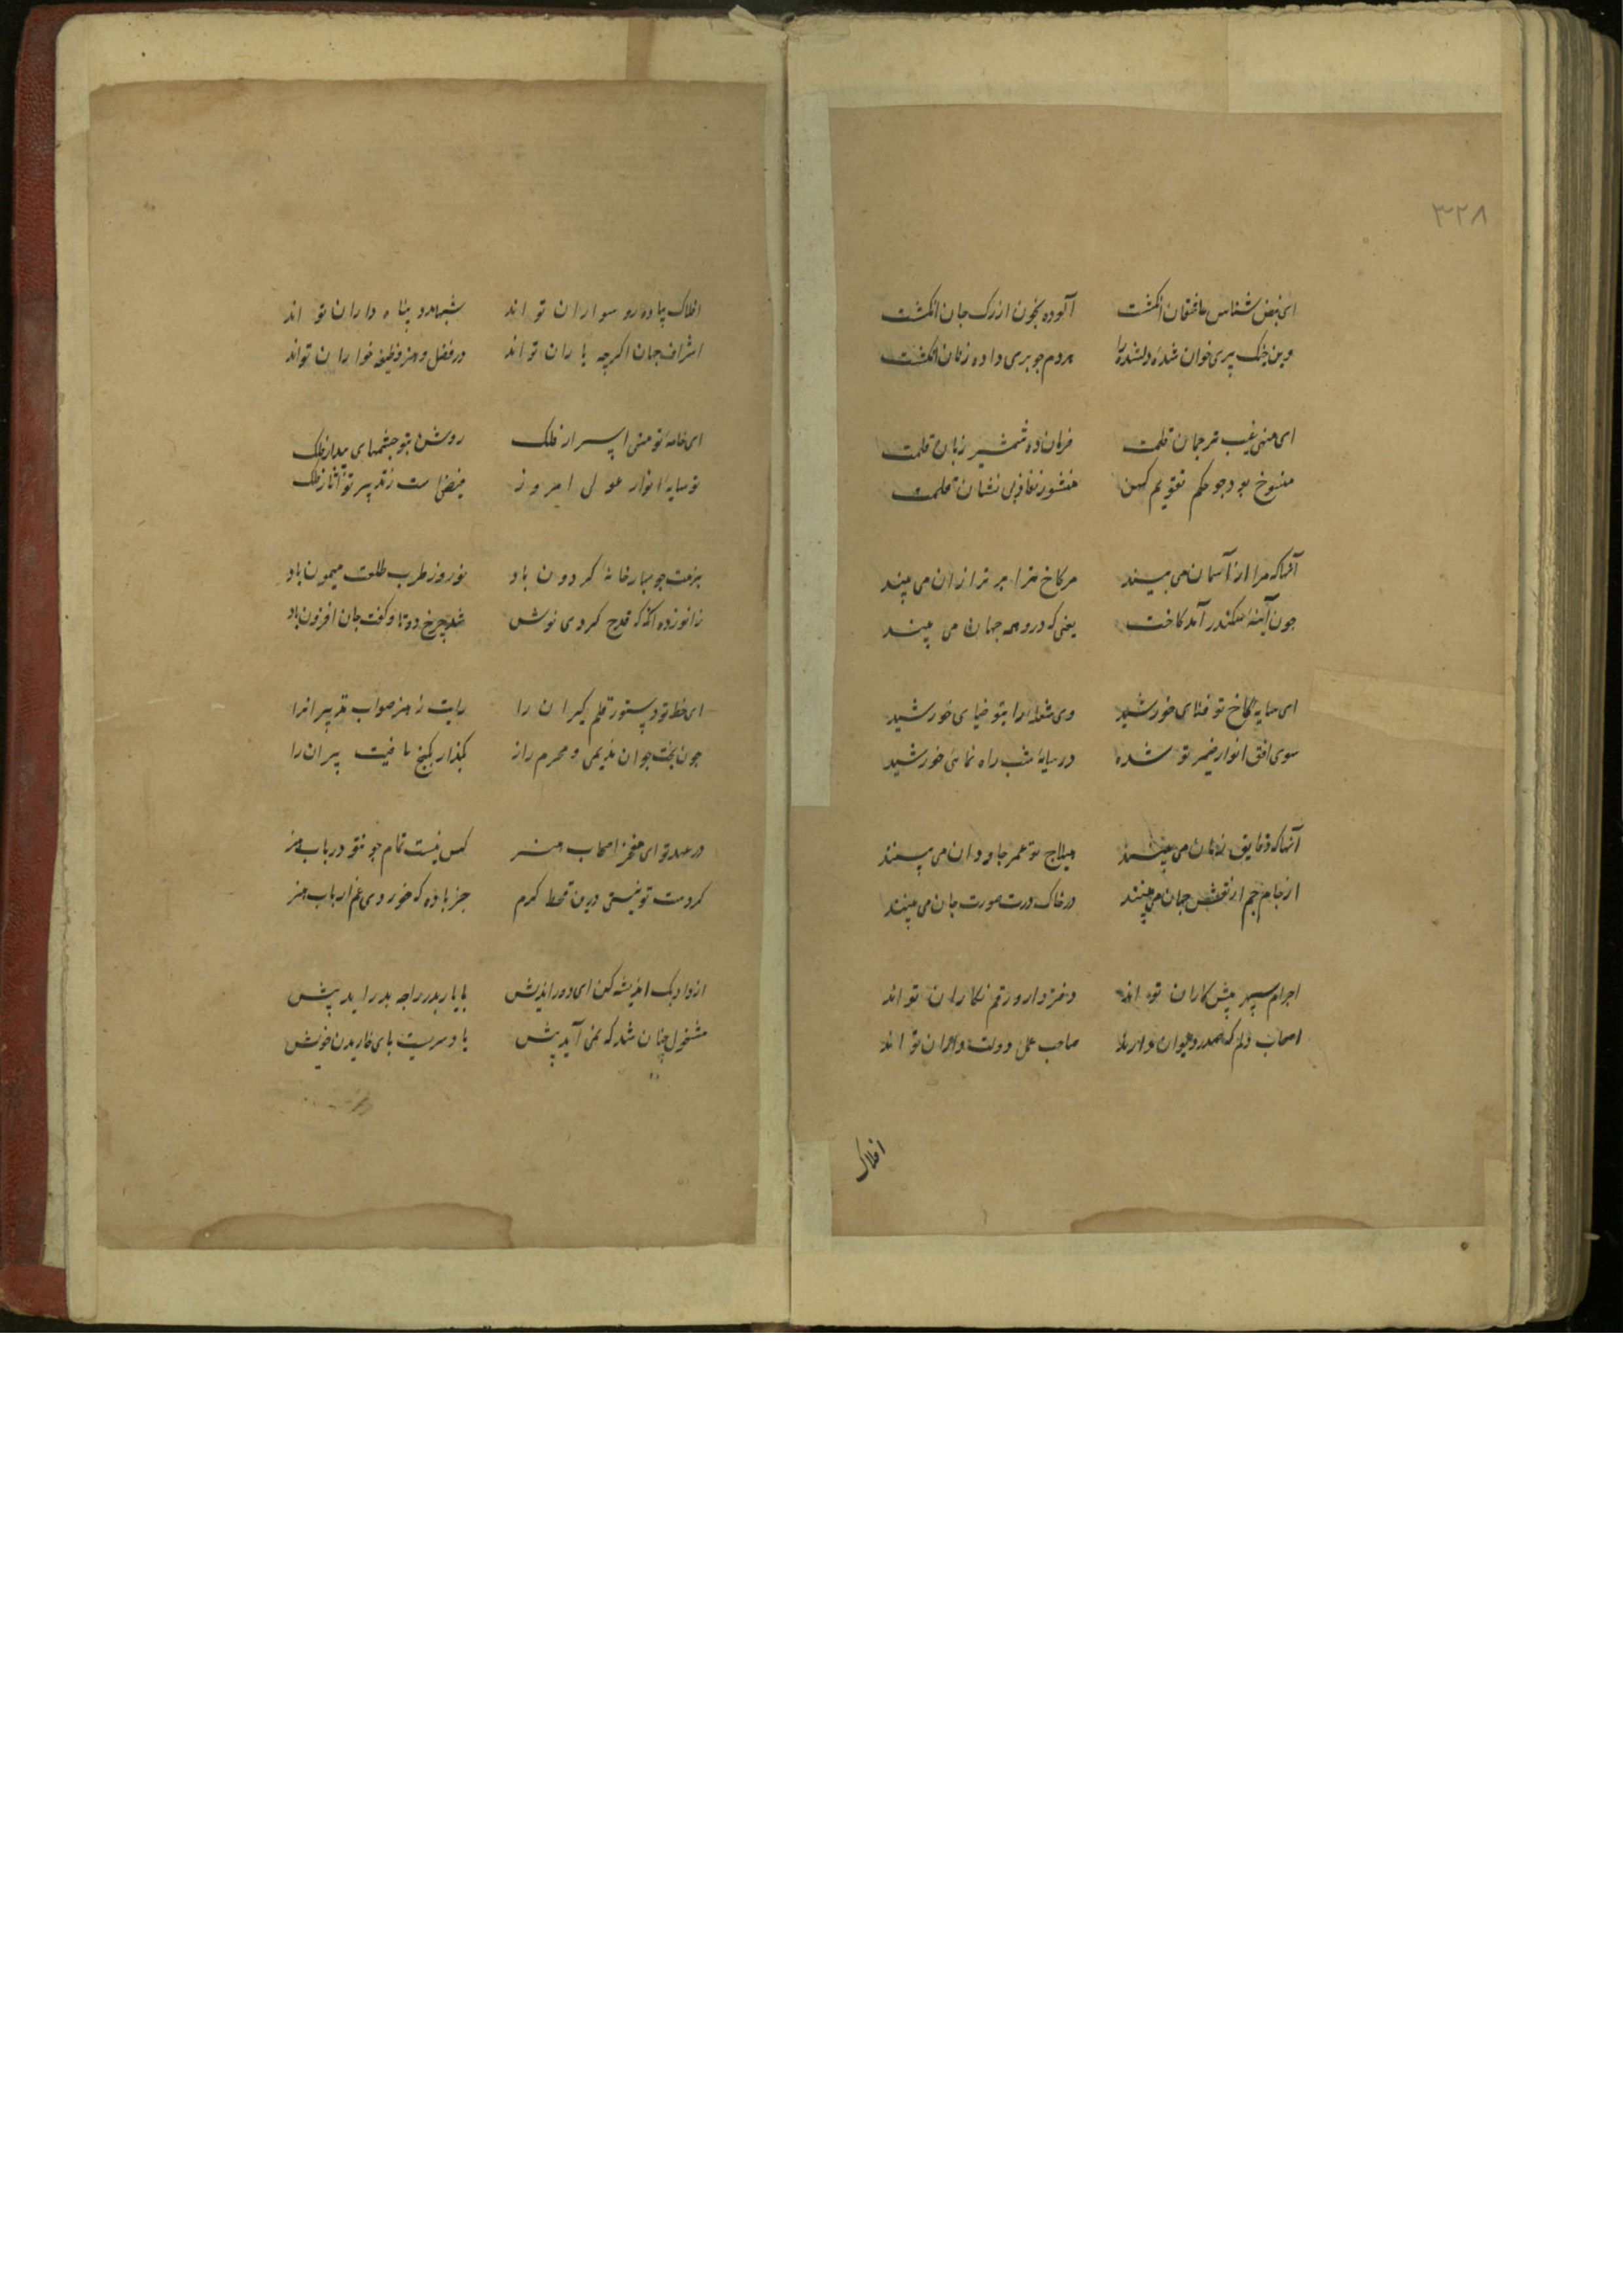 ۳۲۸
ای نبض شناس عاشقان انگشت آلوده بخون از رک جان انگشت
وین چنک پری خوان شده دلشده را مردم جو بری داده زبان انگشت
ای منهی غیب ترجمان قلمت فرمان ده شمشیر زبان قلمت
منسوخ بود جو حکم تقویم کهن منشور نفاذ بی نشان قلمت
آنها که مرا از آسمان می بینند مر کاخ ترا برتر از آن می بینند
جون آینه سکندر آمد کاخت یعنی که درو همه جهان می بینند
ای سایه کاخ تو فنای خورشید وی شعله را بتو ضیای خورشید
سوی افق انوار ضمیر تو شده در سایه شب راه نمای خورشید
آنها که دقایق زمان می بینند میلاج تو عمر جاودان می بینند
از جام جم ار نقش جهان می بینند در خاک درت صورت جان می بینند
اجرام سپهر پیش کاران تو اند دفتر دار و رقم نکاران تو اند
اصحاب قلم که صدر دیوان صاحب عمل دولت تو اند
افلاک
افلاک پیاده رو سواران تو اند شبها مه و پناه داران تو اند
اشراف جهان اکرچه یاران تو اند در فضل و هنر وظیفه خواران تو اند
ای خامه تو منهی اسرار فلک روشن بتو جشمهای بیدار فلک
تو سایه انوار امروز فیض است زتدبیر تو آثار فلک
بزمت جو بهارخانه کردون باد نوروز طرب طلعت میمون باد
زانو زده انکه قدح کردی نوش شد جرخ دوتا و کفت جان افزون باد
ای خط تو دستور قلم کیران را رایت ز هنر صواب تدبیرانرا
جون بخت جوان ندیمی و محرم راز بکذار بکنج عافیت پیران را
در عهد تو ای مفخر اصحاب هنر کس نیست تمام جو تو در باب هنر
کردست تو نیستی درین قحط کرم جز باده که خوردی غم ارباب هنر
از واد بک اندیشه کن ای دوراندیش
مشغول چنان شد که نمی آید پیش با دو سر بیت پای خاریدن خویش